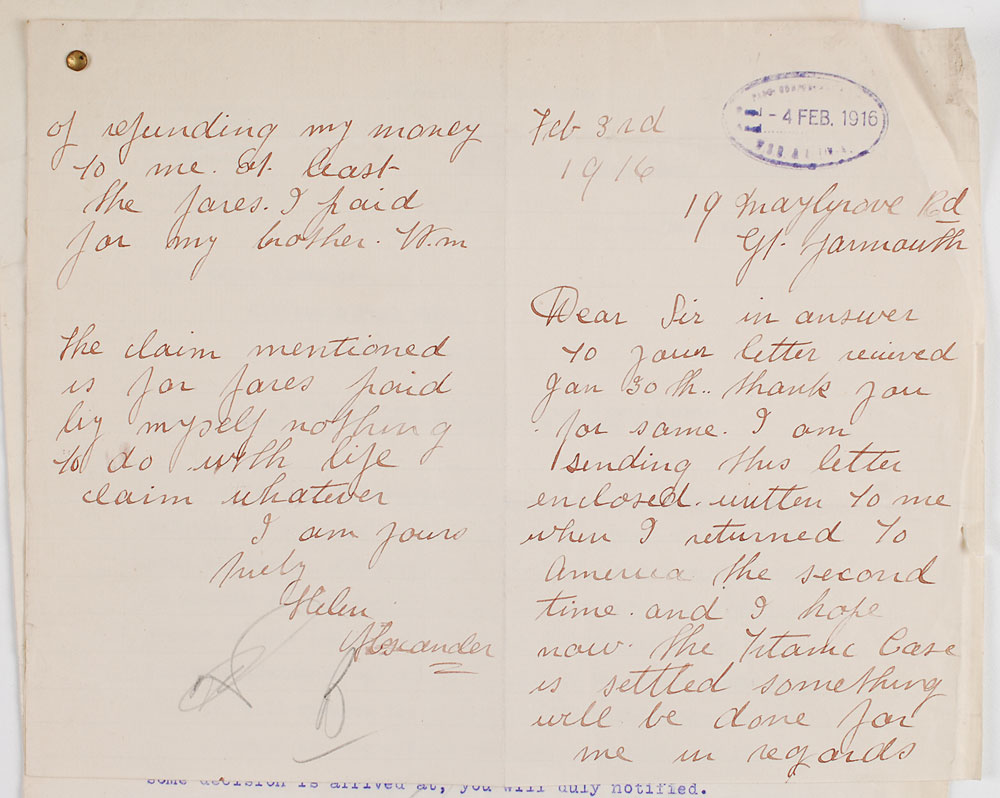 Feb 3rd
1916
- 4 FEB. 1916
19 Maygrove Rd
Gt. Yarmouth
Dear Sir in answer
to your letter recieved
Jan 30th.. thank you
for same. I am
sending this letter
enclosed. written to me
when I returned to
America the second
time. and I hope
now. the Titanic Case
is settled something
will be done for
me in regards
of refunding my money
to me. at. least
the fares. I paid
for my brother. Wm
the claim mentioned
is for fares paid
by myself nothing
to do with life
claim whatever
I am yours
truly
Helen
Alexander
some decision is arrived at, you will duly notified.